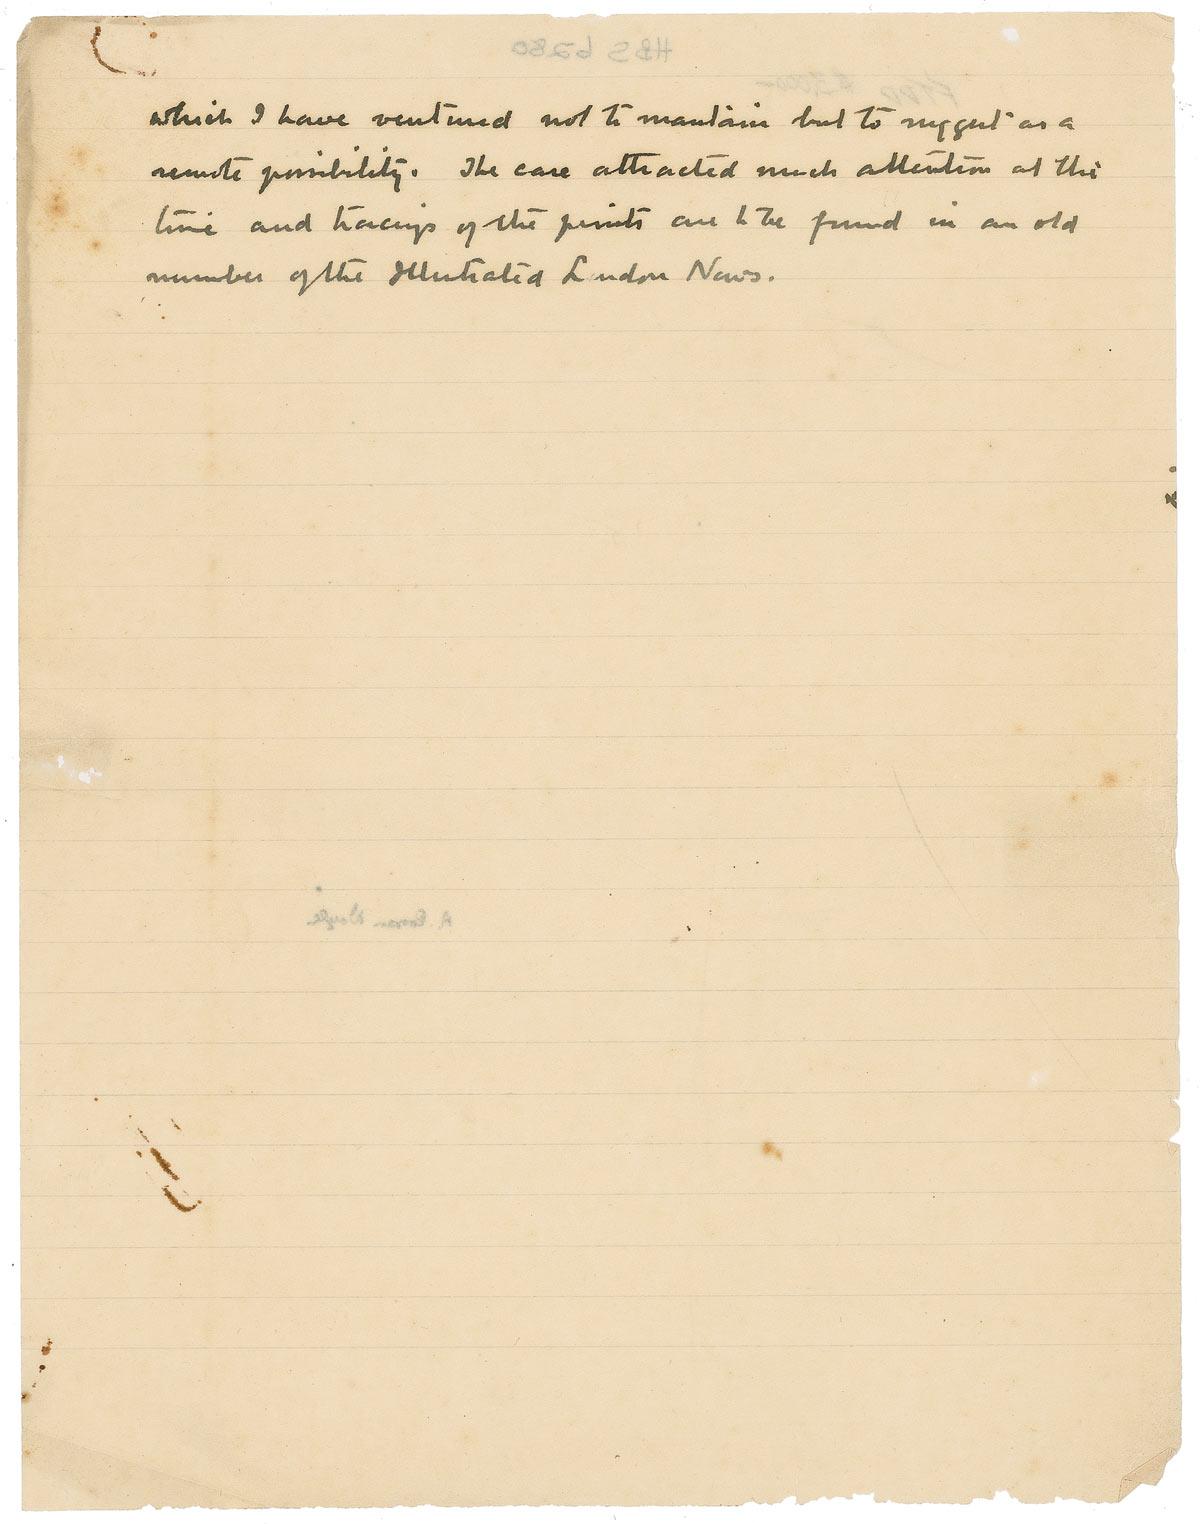 HBS 6280
which I have ventured not to maintain but to suggest as a
remote possibility. The case attracted much attention at the
time and tracings of the prints are to be found in an old
number of the Illustrated London News.
A. Conan Doyle